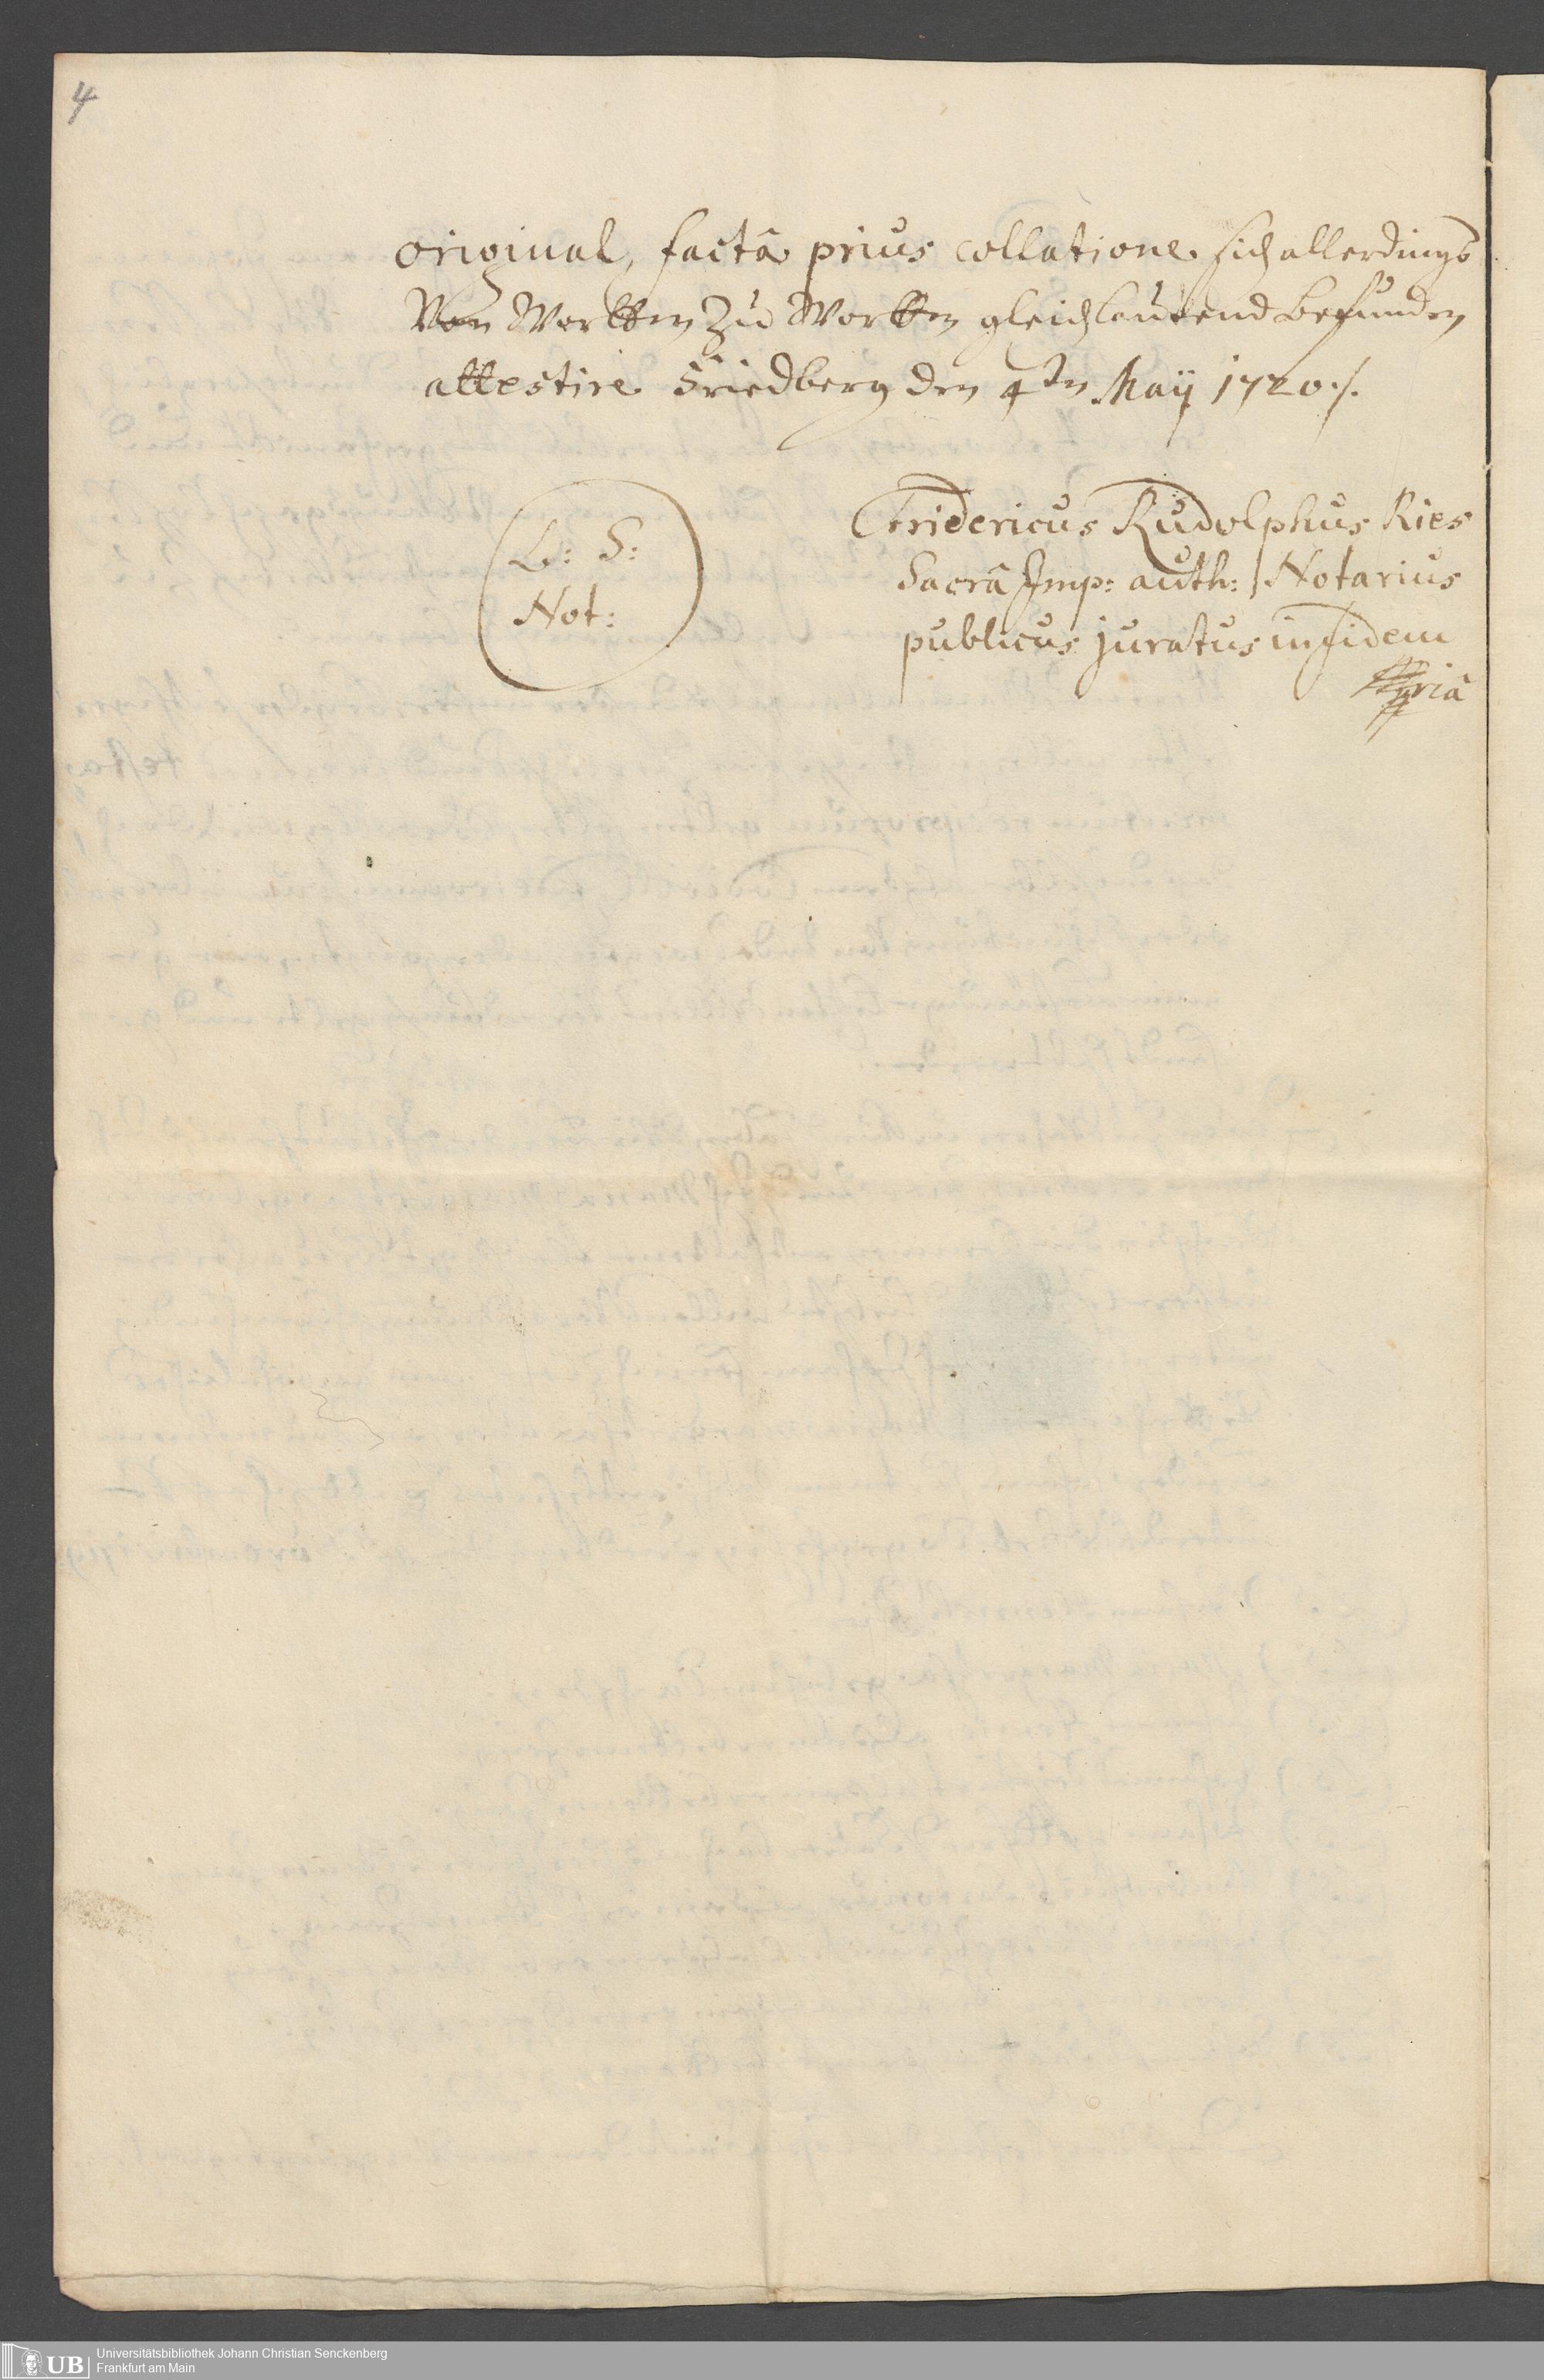 4
original, factâ prius collatione sich allerdings
Von Wortten Zu Wortten gleichlautend befunden
attestire Friedberg den 4ten Maÿ 1720 ./.
L: S:
Not:
Fridericus Rudolphus Ries
Sacrâ Imp: auth: Notarius
publicus juratus in fidem
ppriâ
UB
Universitätsbibliothek Johann Christian Senckenberg
Frankfurt am Main